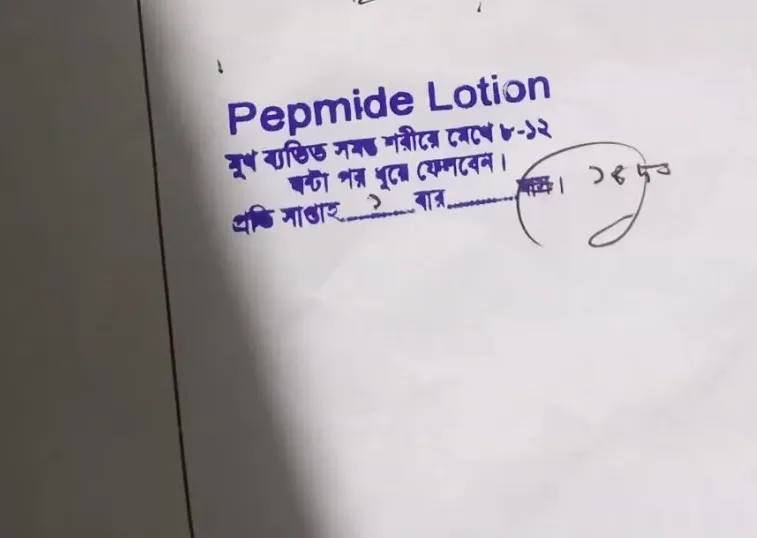 Pepmide Lotion
মুখ ব্যতিত সমস্ত শরীরে মেখে ৮-১২
ঘন্টা পর ধুয়ে ফেলবেন।
প্রতি সাপ্তাহ ১ বার মাস।